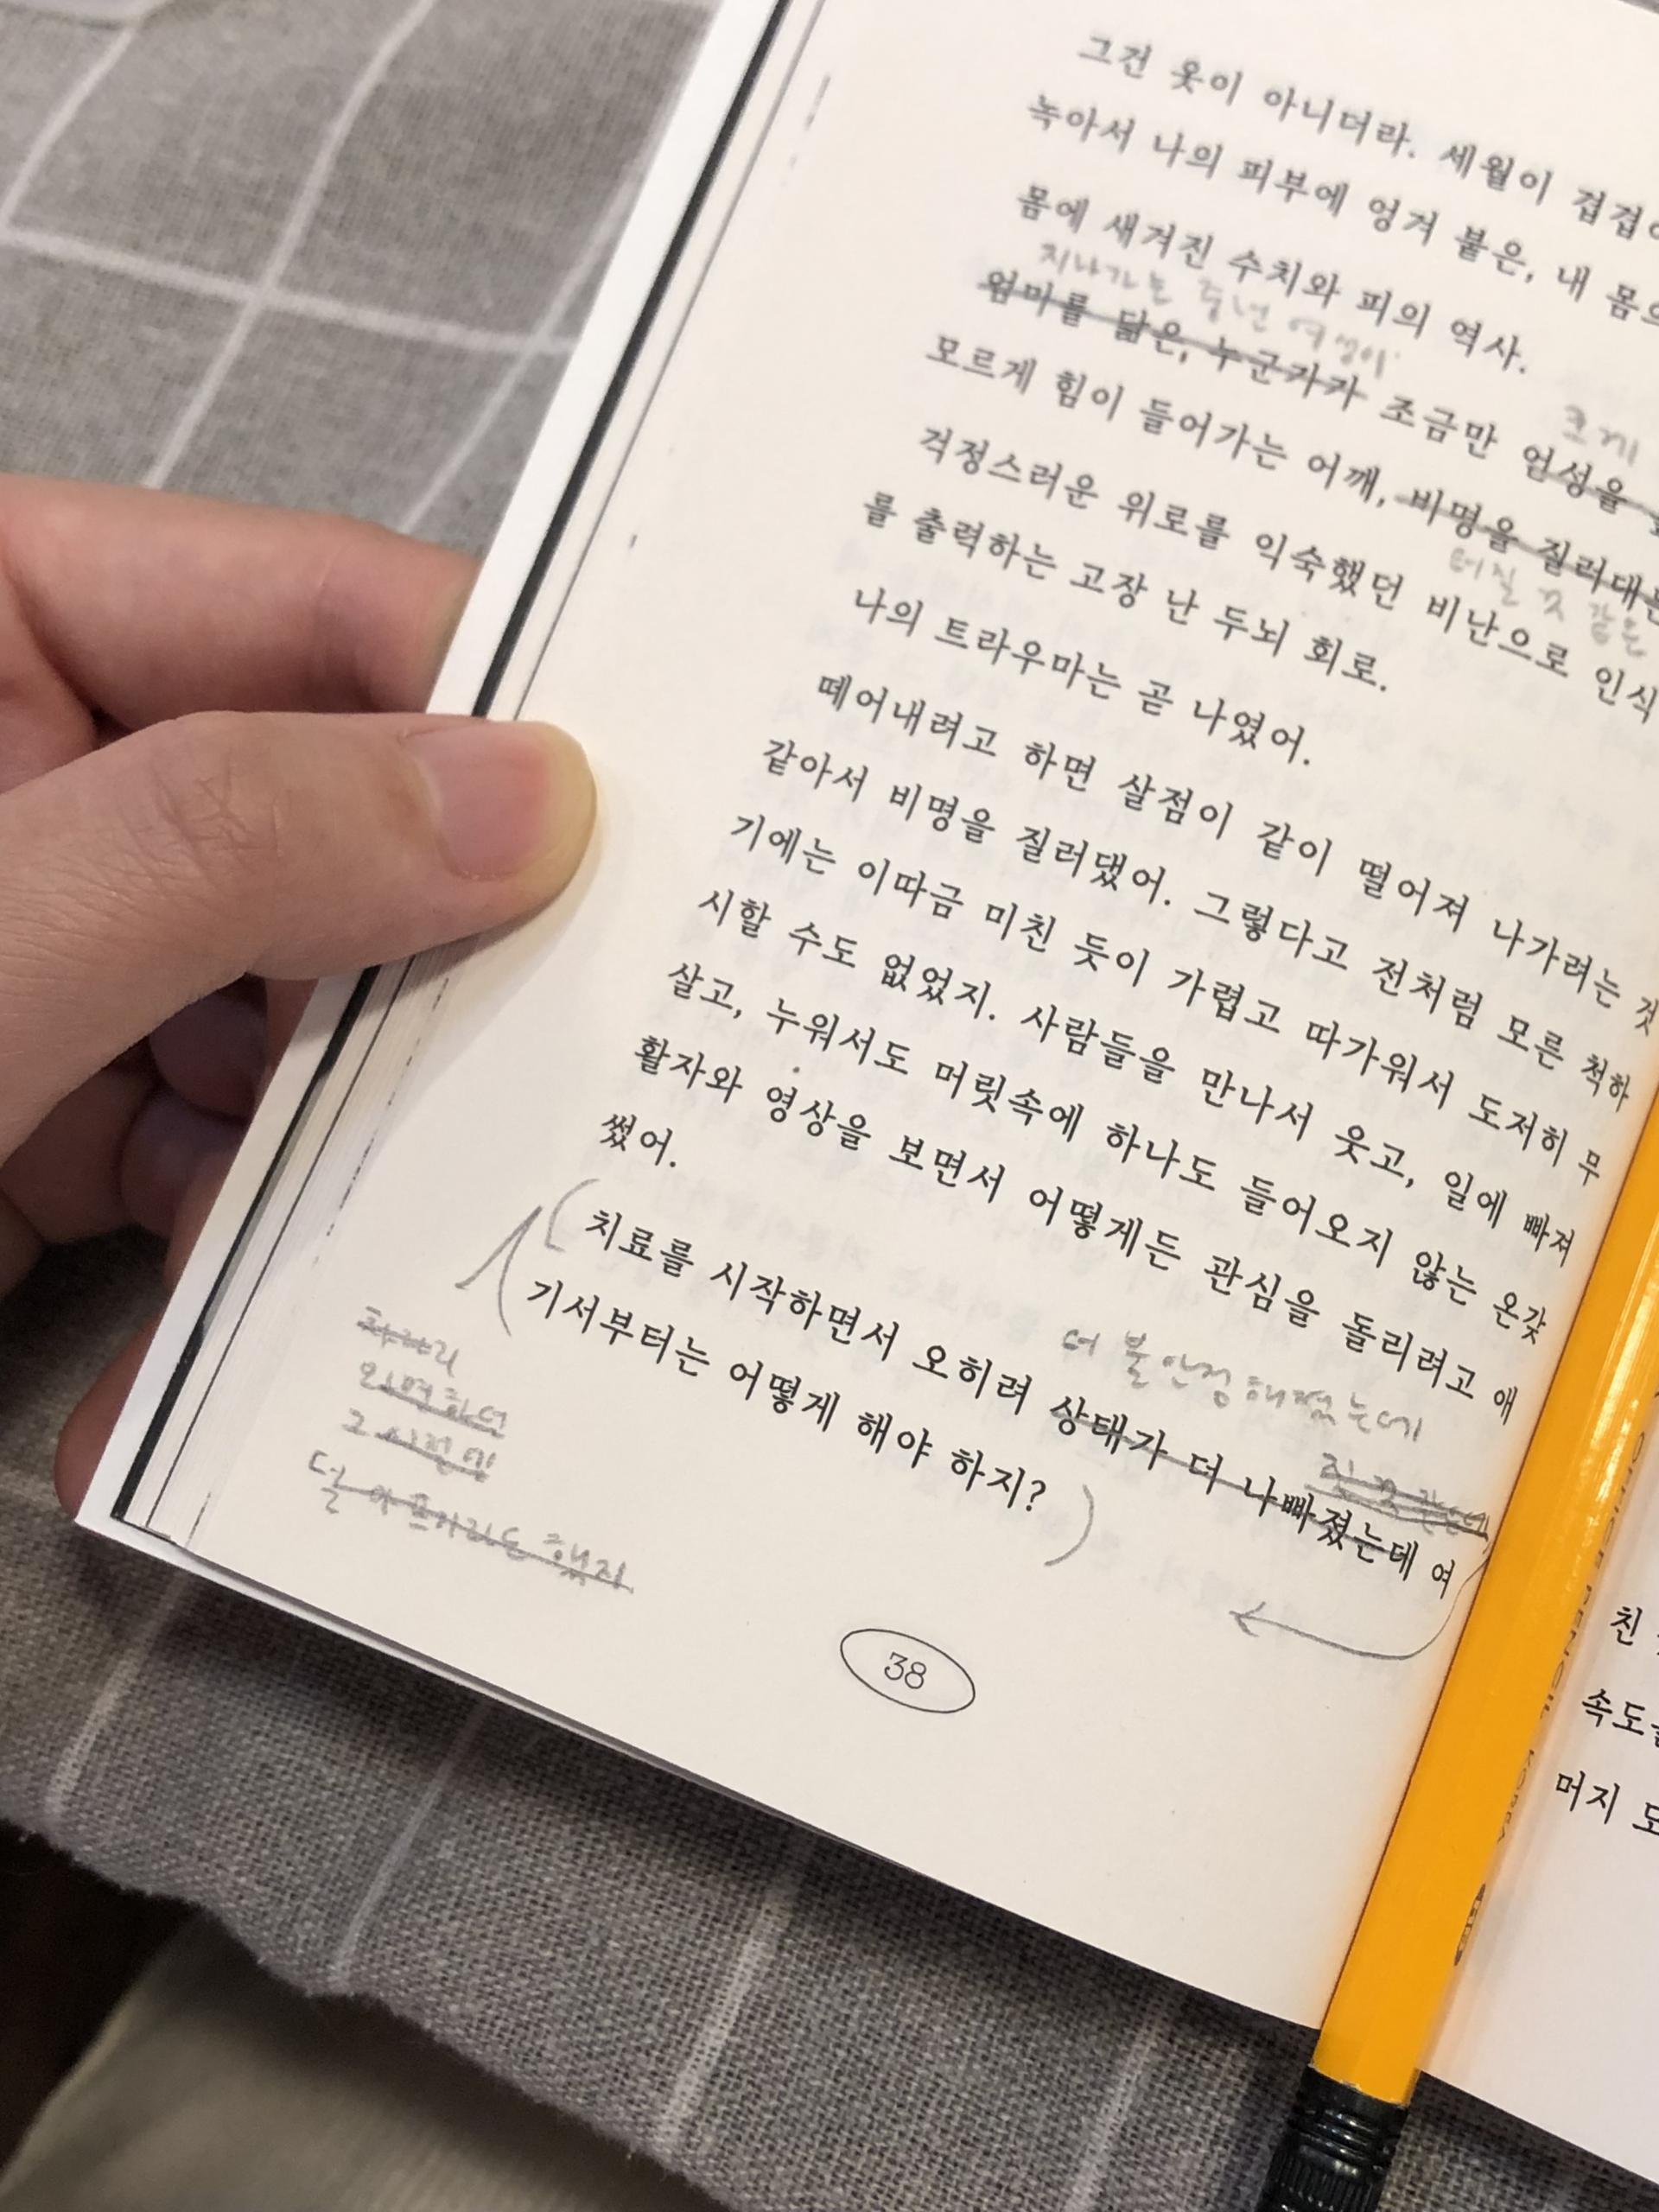 그건 옷이 아니더라. 세월이 겹겹이
녹아서 나의 피부에 엉겨 붙은, 내 몸의
몸에 새겨진 수치와 피의 역사.
지나가는 중년 여성이
엄마를 닮은, 누군가가 조금만 언성을
크게
모르게 힘이 들어가는 어깨, 비명을 질러대는
터질 것 같은
걱정스러운 위로를 익숙했던 비난으로 인식
를 출력하는 고장 난 두뇌 회로.
나의 트라우마는 곧 나였어.
떼어내려고 하면 살점이 같이 떨어져 나가려는 것
같아서 비명을 질러댔어. 그렇다고 전처럼 모른 척하
기에는 이따금 미친 듯이 가렵고 따가워서 도저히 무
시할 수도 없었지. 사람들을 만나서 웃고, 일에 빠져
살고, 누워서도 머릿속에 하나도 들어오지 않는 온갖
활자와 영상을 보면서 어떻게든 관심을 돌리려고 애
썼어.
더 불안정해졌는데
치료를 시작하면서 오히려 상태가 더 나빠졌는데 여
기서부터는 어떻게 해야 하지?
차라리
외면하던
그 시절엔
덜 아프기라도 했지.
38
친
속도를
머지
OFFICE PENCIL KOREA